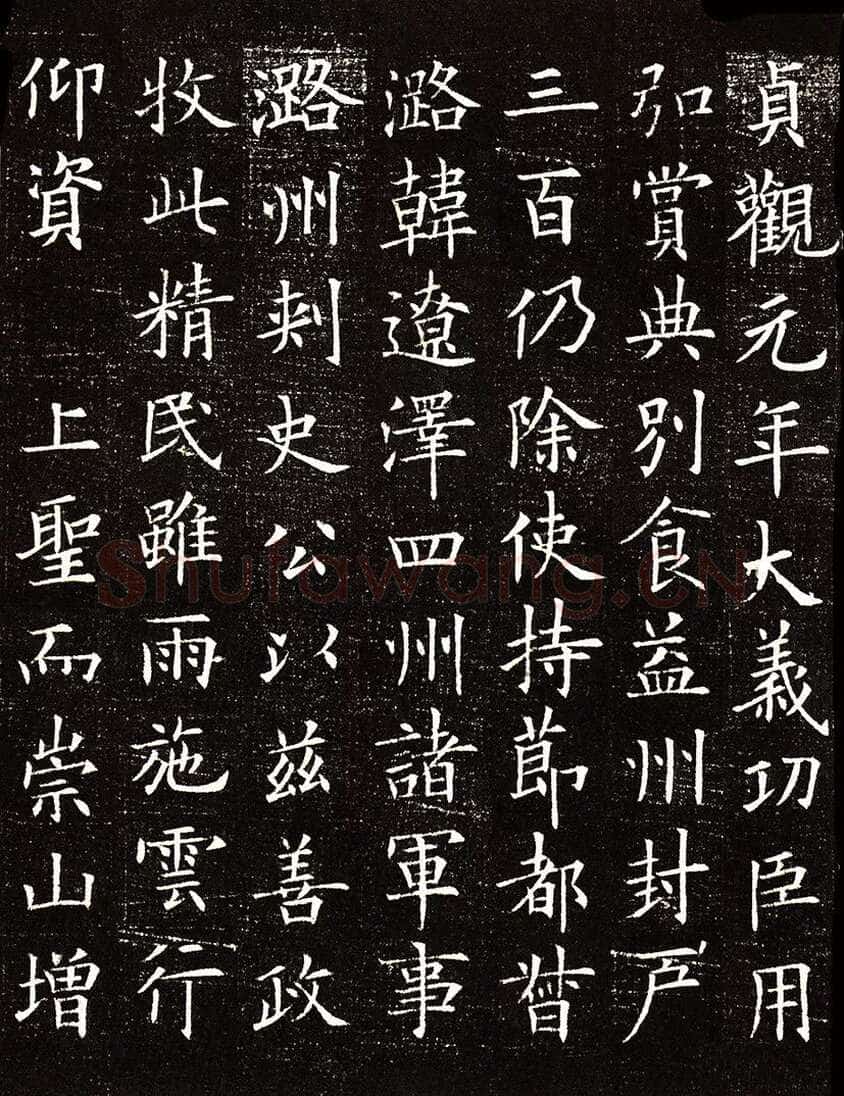 貞觀元年大義功臣用
弘賞典別食益州封戸
三百仍除使持節都督
潞韓遼澤四州諸軍事
潞州刺史公以茲善政
牧此精民雖雨施雲行
仰資 上聖而崇山增
Shufawang.CN